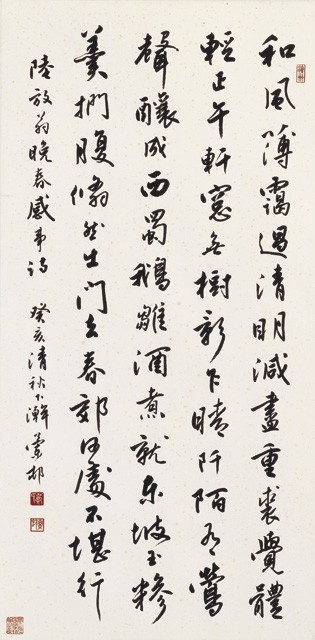 和風薄靄過清明減盡重裘覺體
輕正午軒窓無樹影乍晴阡陌有鶯
聲釀成西蜀鵝雛酒煮就東坡玉糝
羹捫腹翛然出門去春郊何處不堪行
陸放翁晚春感事詩 癸亥清秋下澣 邨